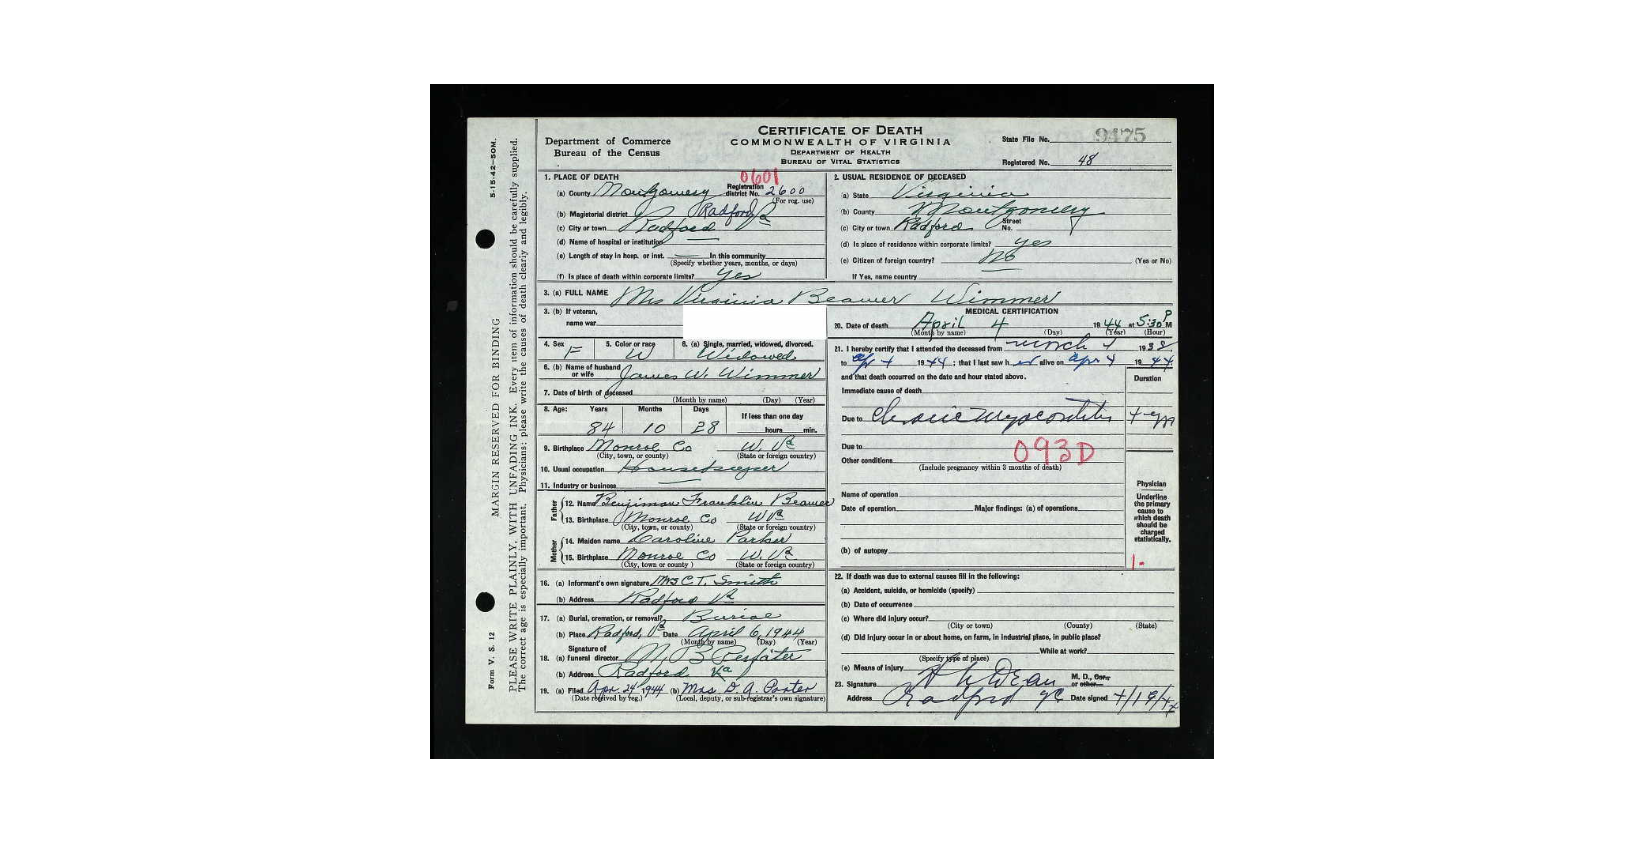 CERTIFICATE OF DEATH
COMMONWEALTH OF VIRGINIA
DEPARTMENT OF HEALTH
BUREAU OF VITAL STATISTICS
Department of Commerce
Bureau of the Census
State File No. 9475
Registered No. 48
5-15-42—50M.
MARGIN RESERVED FOR BINDING
PLEASE WRITE PLAINLY, WITH UNFADING INK. Every item of information should be carefully supplied.
The correct age is especially important. Physicians: please write the causes of death clearly and legibly.
Form V. S. 12
1. PLACE OF DEATH 0601
(a) County Montgomery Registration district No. 2600
(For reg. use)
(b) Magisterial district Radford
(c) City or town Radford Va
(d) Name of hospital or institution
(e) Length of stay in hosp. or inst. In this community
(Specify whether years, months, or days)
(f) Is place of death within corporate limits? Yes
2. USUAL RESIDENCE OF DECEASED
(a) State Virginia
(b) County Montgomery
(c) City or town Radford Street No.
(d) Is place of residence within corporate limits? Yes
(e) Citizen of foreign country? No (Yes or No)
If Yes, name country
3. (a) FULL NAME Mrs Virginia Beamer Wimmer
3. (b) If veteran,
name war
4. Sex F 5. Color or race W 6. (a) Single, married, widowed, divorced. Widowed
6. (b) Name of husband or wife James W. Wimmer
7. Date of birth of deceased
(Month by name) (Day) (Year)
8. Age: Years Months Days If less than one day
84 10 28 hours min.
9. Birthplace Monroe Co W. Va
(City, town, or county) (State or foreign country)
10. Usual occupation Housekeeper
11. Industry or business
Father
12. Name Benjiman Franklin Beamer
13. Birthplace Monroe Co W Va
(City, town, or county) (State or foreign country)
Mother
14. Maiden name Caroline Parker
15. Birthplace Monroe Co W. Va
(City, town or county) (State or foreign country)
16. (a) Informant's own signature Mrs C T. Smith
(b) Address Radford Va
17. (a) Burial, cremation, or removal? Burial
(b) Place Radford, Va Date April 6, 1944
(Month by name) (Day) (Year)
18. (a) Signature of funeral director M B
(b) Address Radford. Va
19. (a) Filed Apr. 24, 1944 (b) Mrs D. A. Porter
(Date received by reg.) (Local, deputy, or sub-registrar's own signature)
MEDICAL CERTIFICATION
20. Date of death April 4 1944 at 5:30 P M
(Month by name) (Day) (Year) (Hour)
21. I hereby certify that I attended the deceased from 1938
to Apr 4 1944; that I last saw h er alive on Apr 4 1944
and that death occurred on the date and hour stated above.
Duration
Immediate cause of death
Due to Chronic Myocarditis
Due to
093D
Other conditions
(Include pregnancy within 3 months of death)
Name of operation
Date of operation Major findings: (a) of operations
(b) of autopsy
Physician
Underline the primary cause to which death should be charged statistically.
1.
22. If death was due to external causes fill in the following:
(a) Accident, suicide, or homicide (specify)
(b) Date of occurrence
(c) Where did injury occur?
(City or town) (County) (State)
(d) Did injury occur in or about home, on farm, in industrial place, in public place?
While at work?
(Specify type of place)
(e) Means of injury
23. Signature M. D., Cor., or other
Address Radford Date signed